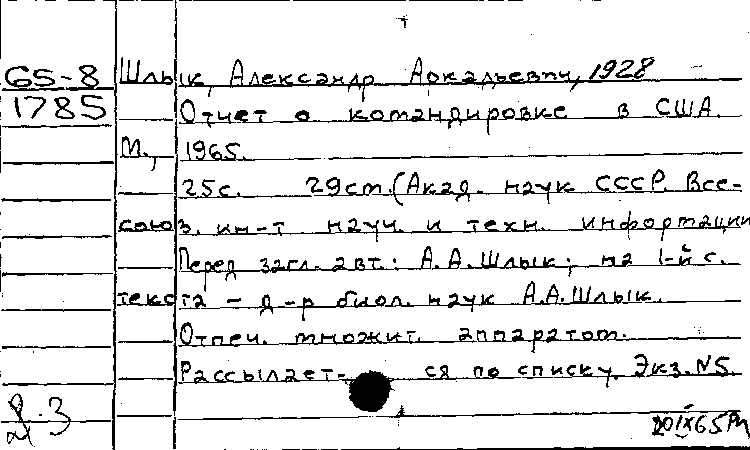 65-8 Шлык, Александр Аркадьевич, 1928
1785 Отчет о командировке в США.
М., 1965.
25с. 29см. (Акад. наук СССР. Все-
союз. ин-т науч. и техн. информации
Перед загл. авт.: А.А. Шлык; на 1-й с.
текста - д-р биол. наук А.А. Шлык.
Отпеч. множит. аппаратом.
Рассылает- ся по списку. Экз. №5.
3
20IX65